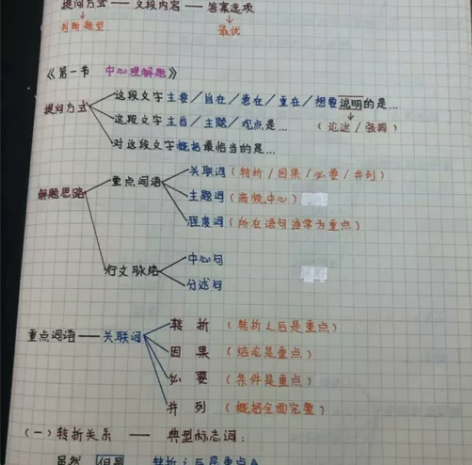 提问方式 —— 文段内容 —— 答案选项
↓ ↓
判断题型 最优
《第一节 中心理解题》
提问方式
这段文字主要/旨在/意在/重在/想要说明的是…
(论述/强调)
这段文字主旨/主题/观点是…
对这段文字概括最恰当的是…
解题思路
重点词语
关联词(转折/因果/必要/并列)
主题词(高频,中心)
程度词(所在语句通常为重点)
行文脉络
中心句
分述句
重点词语——关联词
转折(转折之后是重点)
因果(结论是重点)
必要(条件是重点)
并列(概括全面完整)
(一)转折关系 —— 典型标志词:
虽然 但是 转折之后是重点